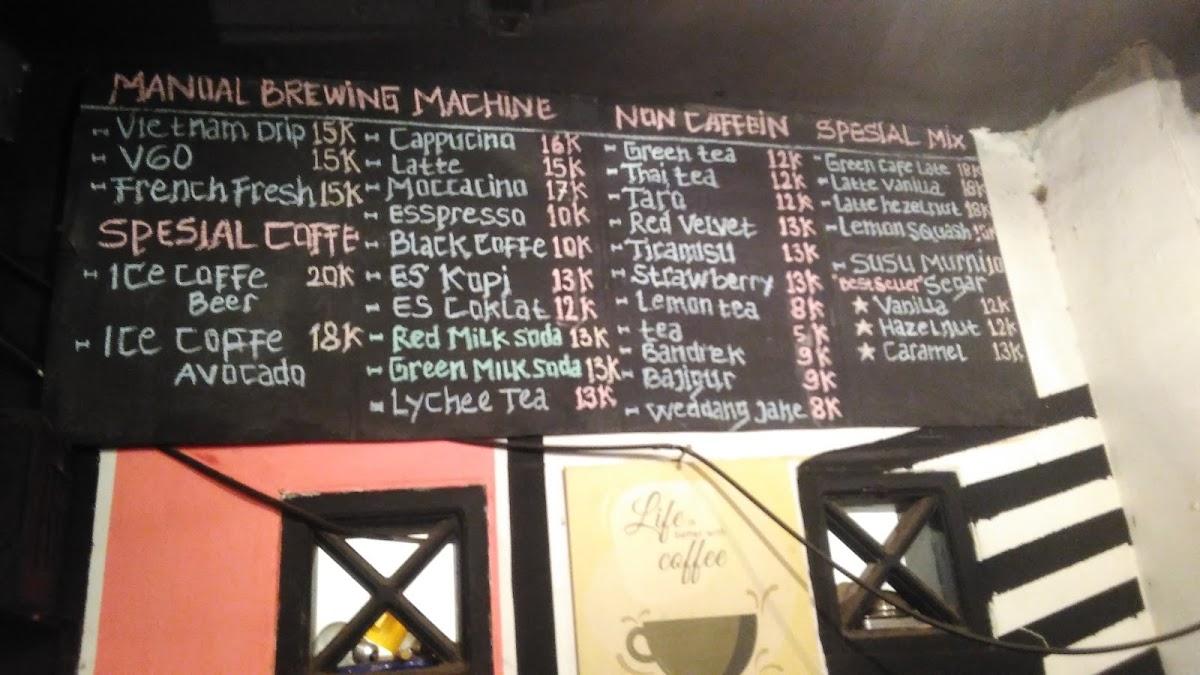 MANUAL BREWING MACHINE
Vietnam Drip 15K
V60 15K
French Fresh 15K
SPESIAL COFFE
Ice Coffe 20K
Beer
Ice Coffe 18K
Avocado
Cappucino 16K
Latte 15K
Moccacino 17K
Esspresso 10K
Black Coffe 10K
ES Kopi 13K
ES Coklat 12K
Red Milk Soda 13K
Green Milk Soda 13K
Lychee Tea 13K
NON CAFFEIN
Green tea 12K
Thai tea 12K
Taro 12K
Red Velvet 13K
Tiramisu 13K
Strawberry 13K
Lemon tea 8K
tea 5K
Bandrek 9K
Bajigur 9K
Weddang Jahe 8K
SPESIAL MIX
Green Cafe Late 18K
Latte Vanilla 18K
Latte hezelnut 18K
Lemon Squash
SUSU Murni
Best Seller Segar
★ Vanilla 12K
★ Hazelnut 12K
★ Caramel 13K
Life is
better with
coffee